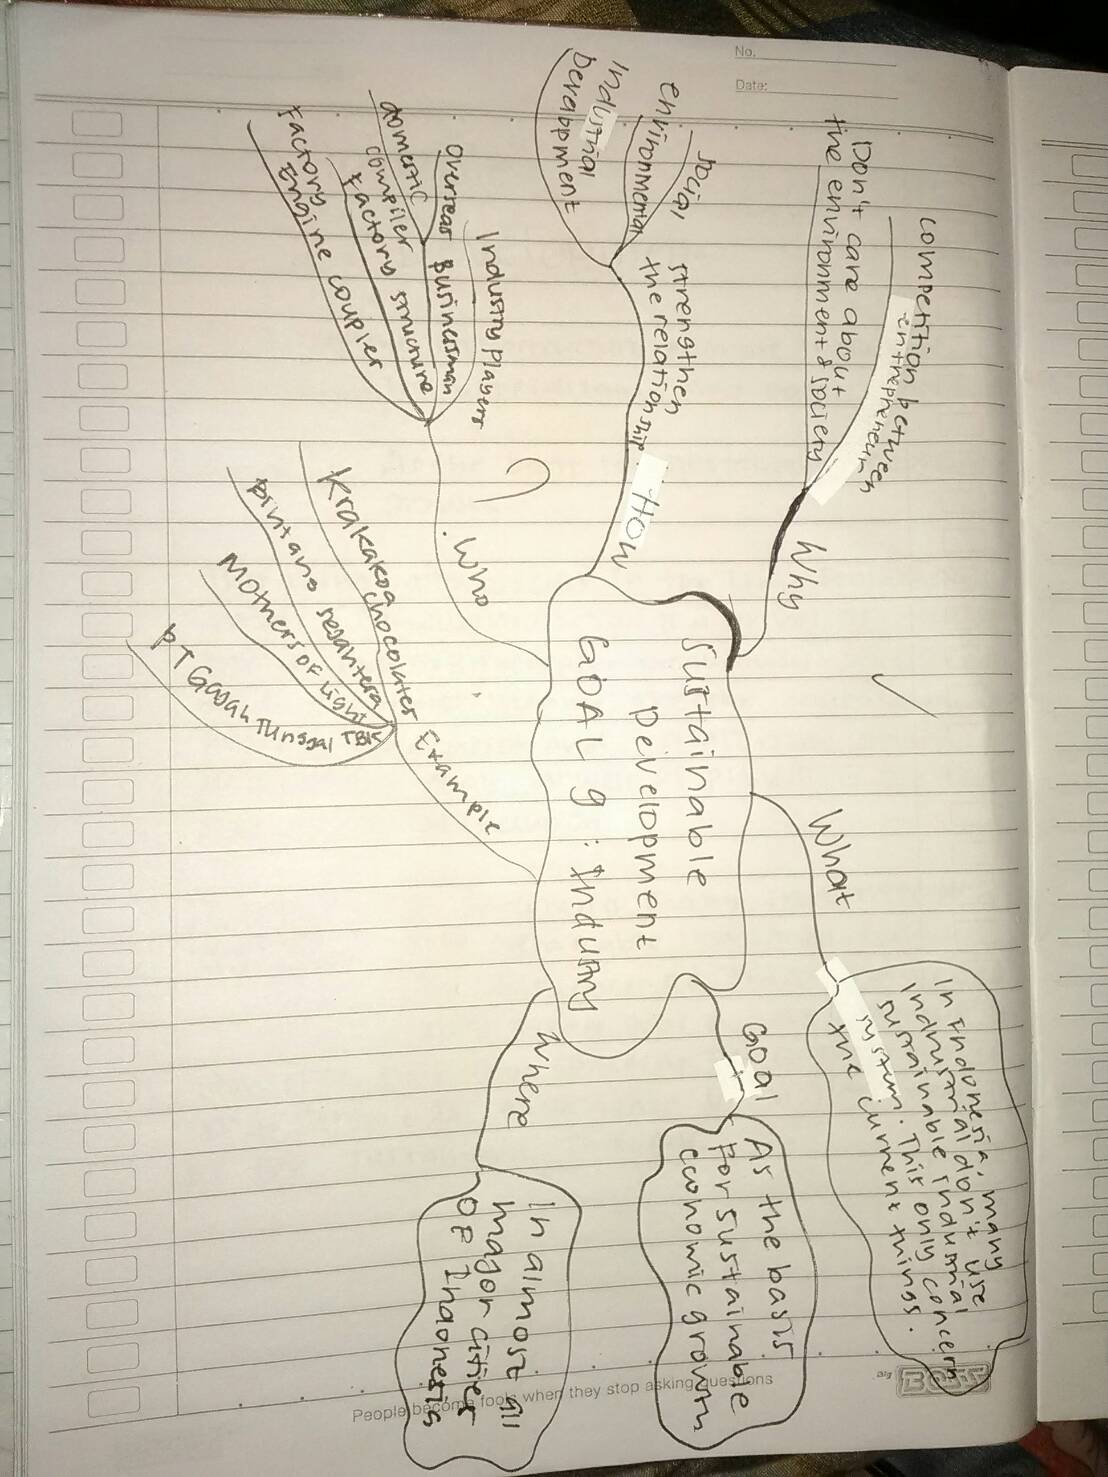 No.
Date:
Sustainable
Development
GOAL 9 : Industry
Why
competition between
entrepreneurs
Don't care about
the environment & society
How
strengthen
the relationship
social
environmental
Industrial
Development
Who
Industry Players
Overseas Businessman
domestic
compiler
Factory structure
Factory
Engine coupler
Example
Krakakoa
chocolates
Mothers of Light
PT Gajah Tunggal TBK
What
In Indonesia, many
Industrial don't use
sustainable industrial
system. This only concern
the current things.
Goal
As the basis
for sustainable
economic growth
Where
In almost all
major cities
OF Indonesia
Big BOSS
People become fools when they stop asking questions